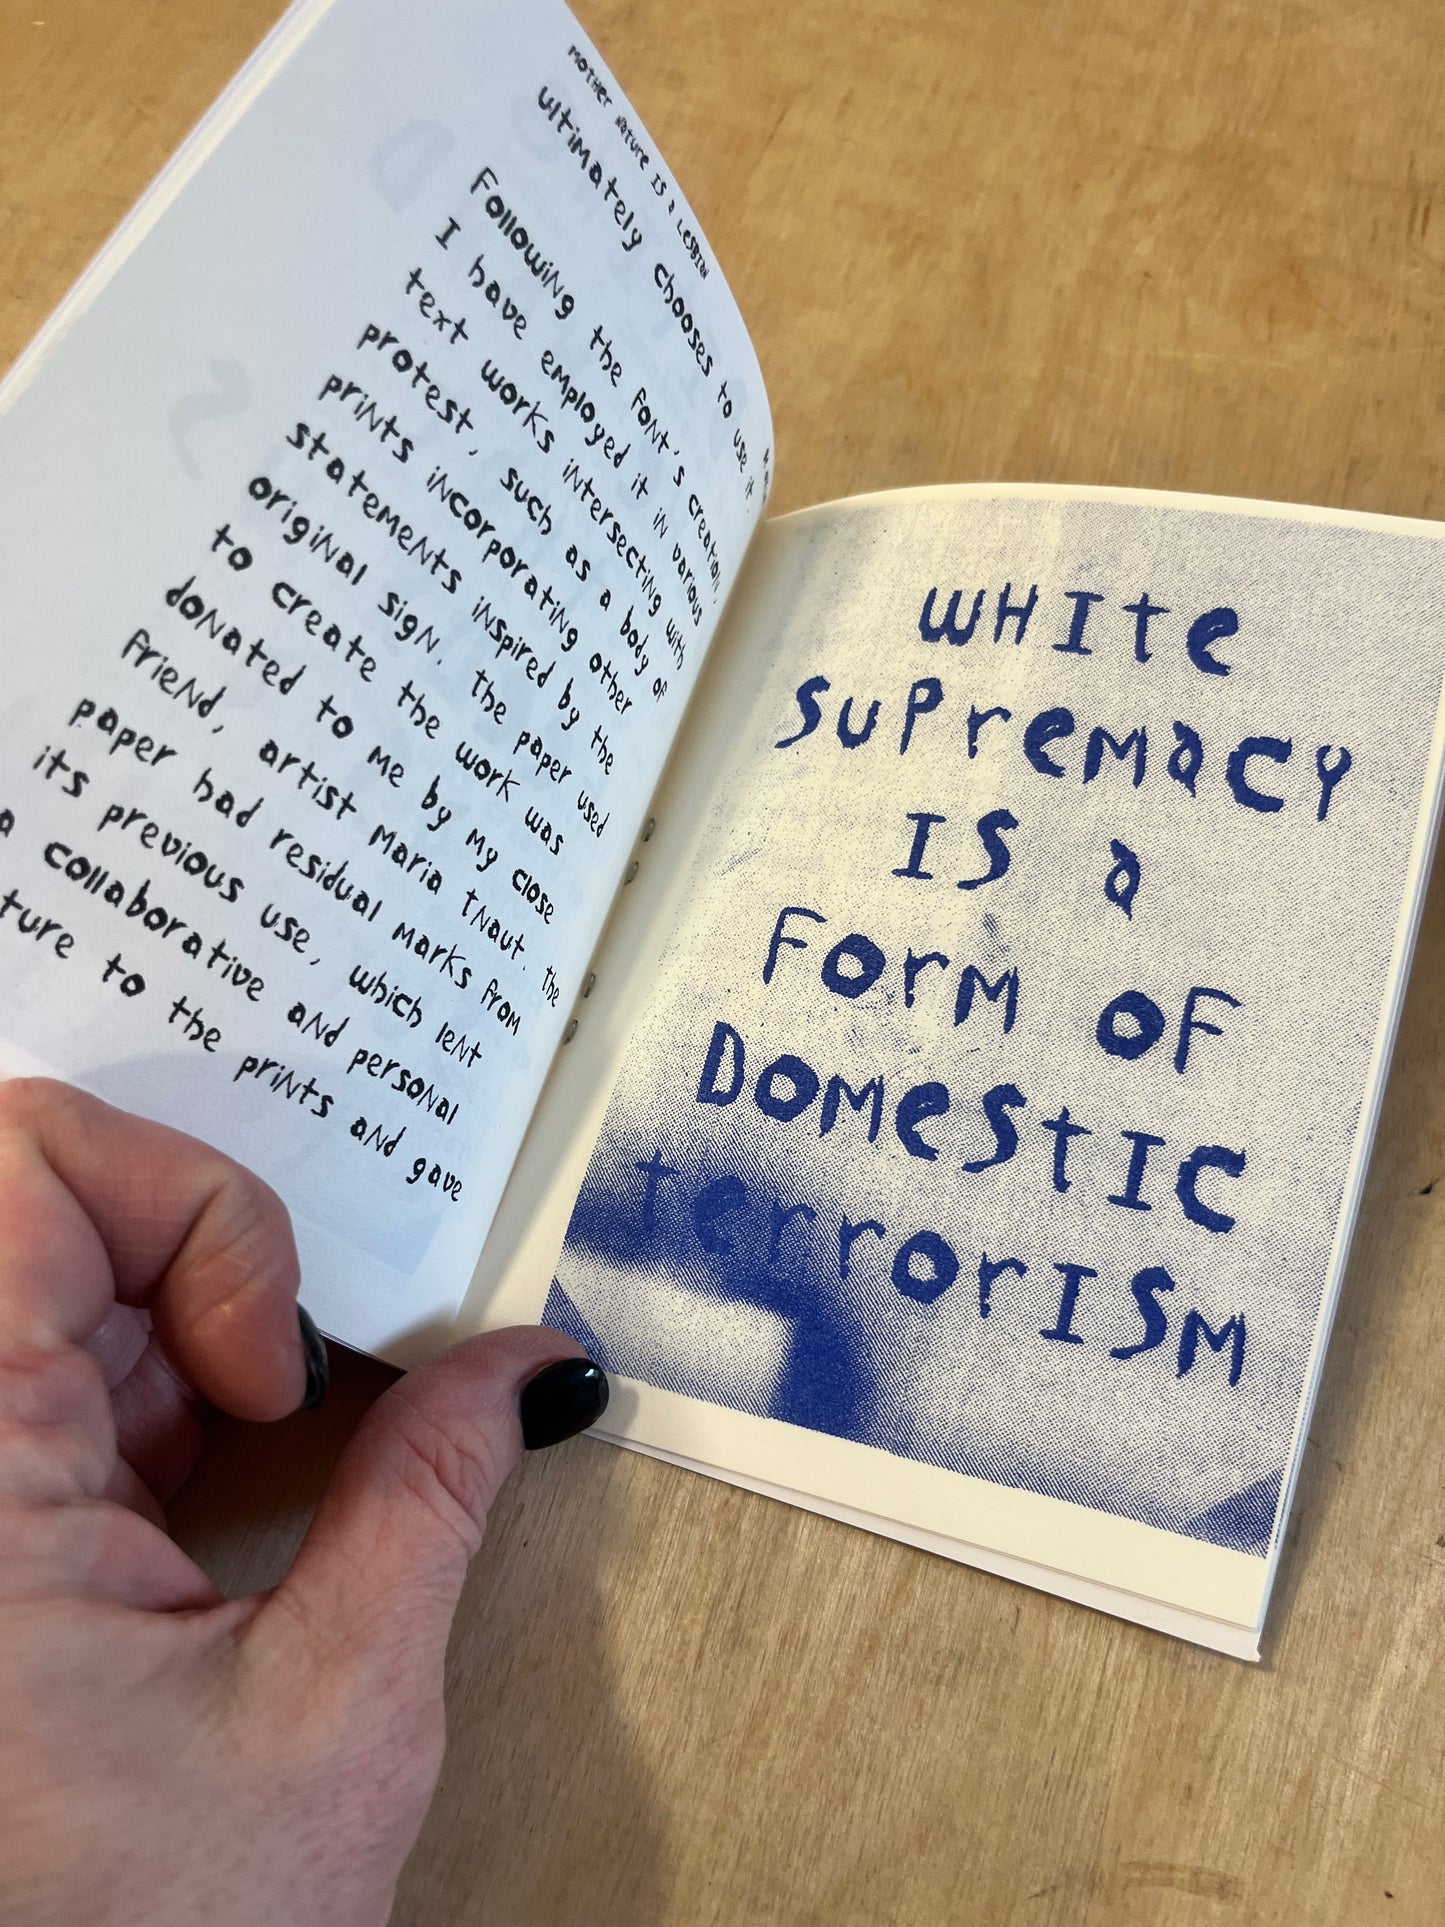 MOTHER NATURE IS A LESBIAN
ultimately chooses to use it.
Following the font's creation,
I have employed it in various
text works intersecting with
protest, such as a body of
prints incorporating other
statements inspired by the
original sign. The paper used
to create the work was
donated to me by my close
friend, artist Maria Tnaut. The
paper had residual marks from
its previous use, which lent
a collaborative and personal
ture to the prints and gave
WHITE
SUPREMACY
IS A
FORM OF
DOMESTIC
TERRORISM